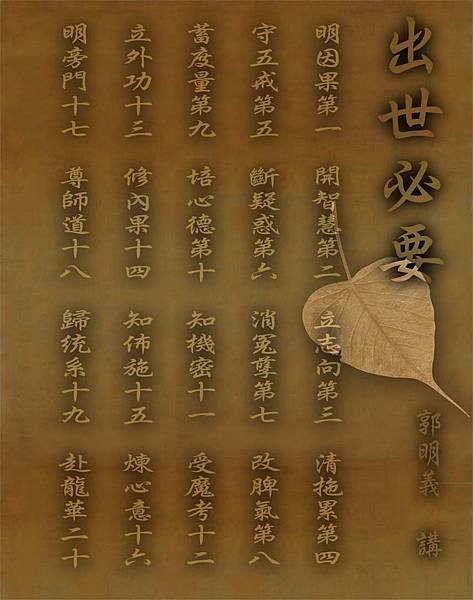 出世必要
郭明義 講
明因果第一
開智慧第二
立志向第三
清拖累第四
守五戒第五
斷疑惑第六
消冤孽第七
改脾氣第八
蓄度量第九
培心德第十
知機密十一
受魔考十二
立外功十三
修內果十四
知佈施十五
煉心意十六
明旁門十七
尊師道十八
歸统系十九
赴龍華二十